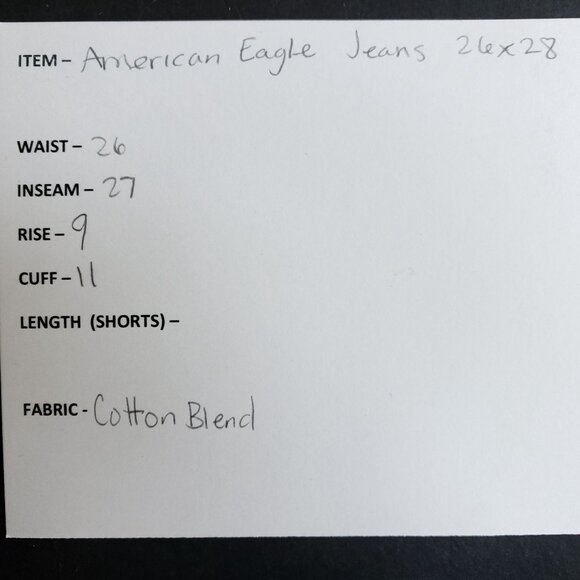 ITEM – American Eagle Jeans 26x28
WAIST – 26
INSEAM – 27
RISE – 9
CUFF – 11
LENGTH (SHORTS) –
FABRIC - Cotton Blend